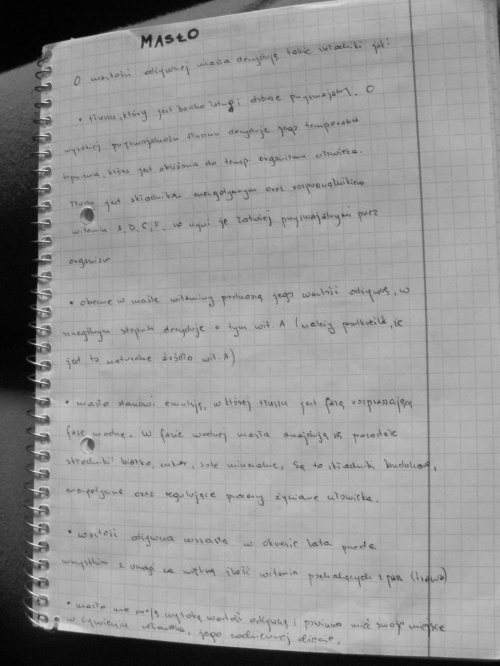 MASŁO
O wartości odżywczej masła decydują takie składniki jak:
• tłuszcz, który jest bardzo lotny i dobrze przyswajalny. O
wysokiej przyswajalności tłuszczu decyduje jego temperatura
topnienia, która jest zbliżona do temp. organizmu człowieka.
Tłuszcz jest składnikiem energetycznym oraz rozpuszczalnikiem
witamin A, D, E, F, co czyni je łatwiej przyswajalnymi przez
organizm
• obecne w maśle witaminy podnoszą jego wartość odżywczą, w
szczególnym stopniu decyduje o tym wit. A (należy podkreślić, iż
jest to naturalne źródło wit. A)
• masło stanowi emulsję, w której tłuszcz jest fazą rozpraszającą
fazę wodną. W fazie wodnej masła znajdują się pozostałe
składniki: białko, cukier, sole mineralne. Są to składniki budulcowe,
energetyczne oraz regulujące procesy życiowe człowieka.
• wartość odżywcza wzrasta w okresie lata przede
wszystkim z uwagi na większą ilość witamin pochodzących z pasz (trawa)
• masło ma swoją wysoką wartość odżywczą i powinno mieć swoje miejsce
w żywieniu człowieka, jego codziennej diecie.